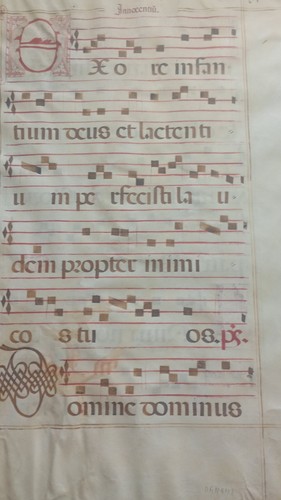 Innocentiũ.
Ex o re infan
tium deus et lactenti
u m pe rfecisti la u
dem propter inimi
co s tu os. ps.
Domine dominus